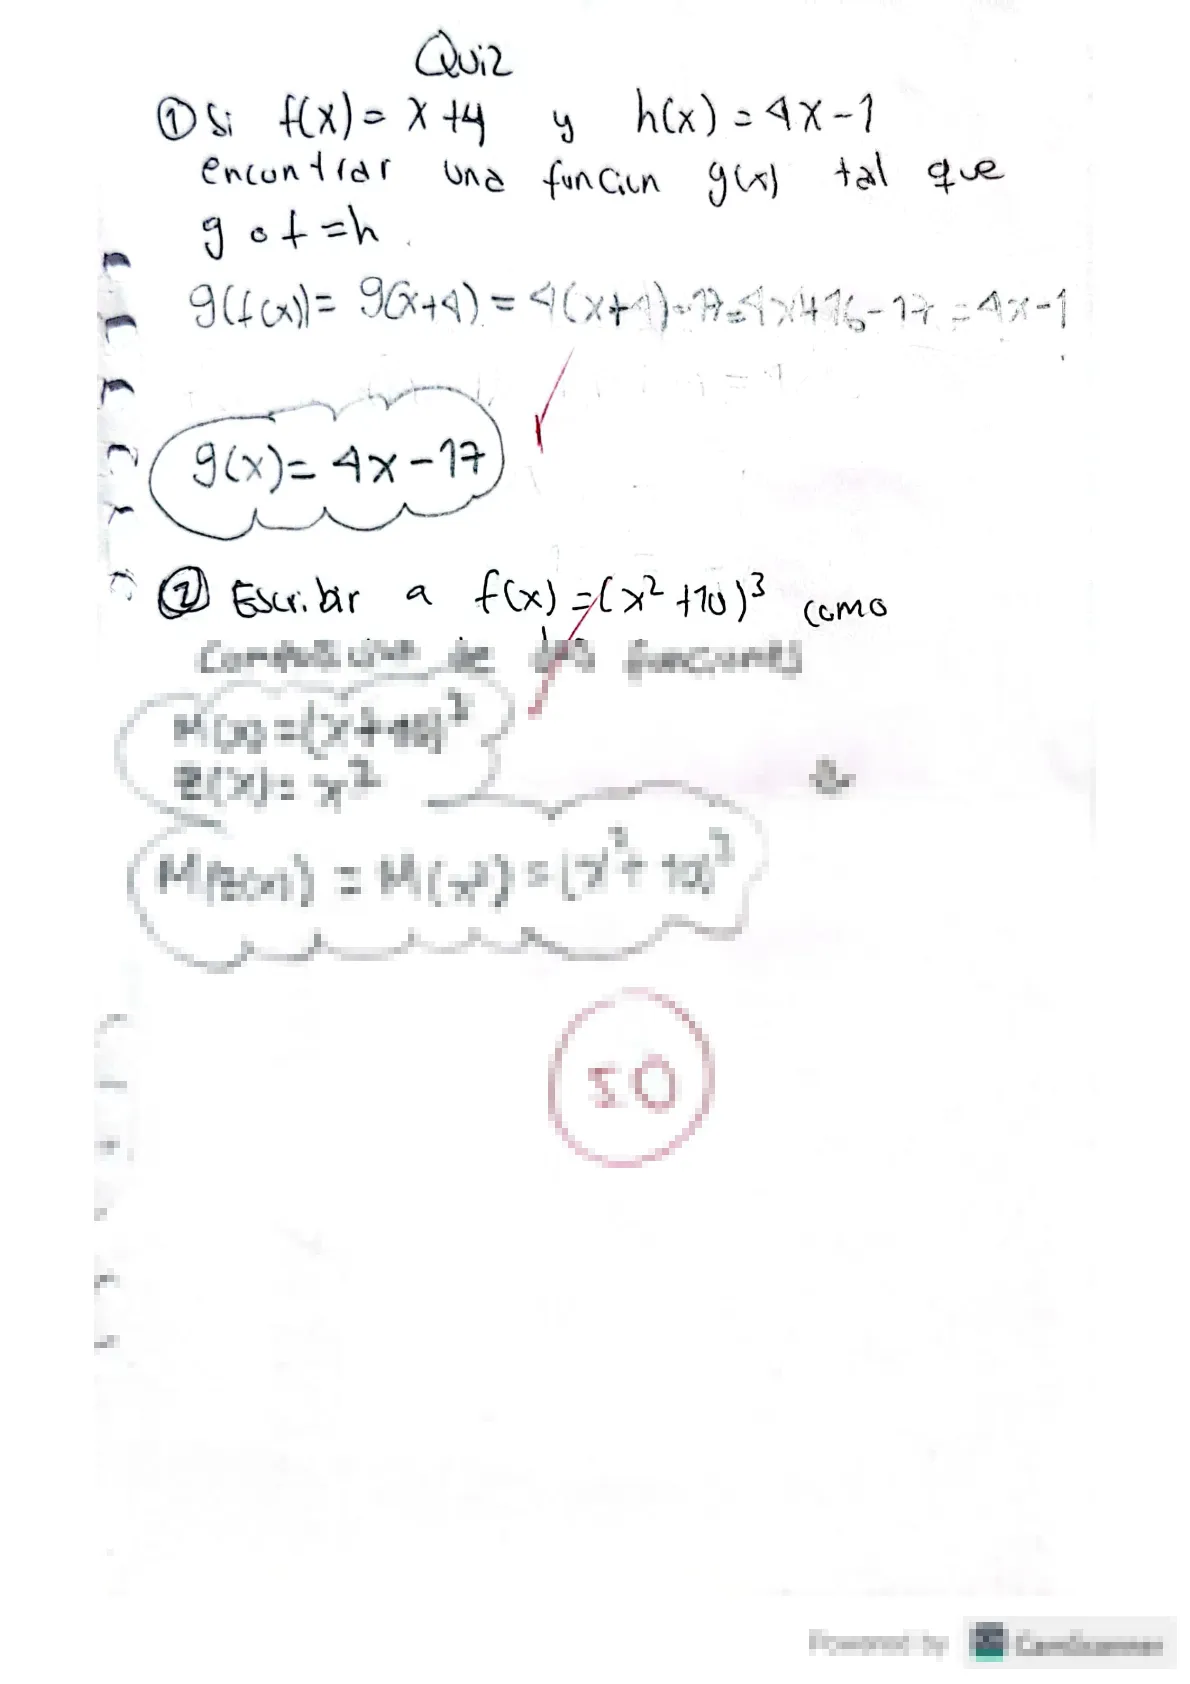 Quiz
① Si f(x) = x + 4 y h(x) = 4x - 1
encontrar una funcion g(x) tal que
g o f = h.
g(f(x)) = g(x+4) = 4(x+4) - 17 = 4x + 16 - 17 = 4x - 1
g(x) = 4x - 17
② Escribir a f(x) = (x² + 10)³ como
composicion de dos funciones
M(x) = (x + 10)³
z(x) = x²
M(z(x)) = M(x²) = (x² + 10)³
50
Powered by CamScanner